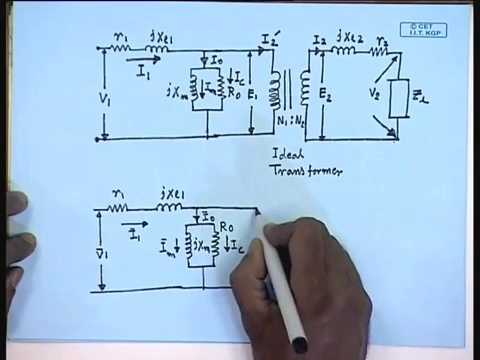 © CET
I.I.T. KGP
r1 jxe1 I2' I2 jxe2 r2
I1 I0
V1 jXm Im R0 Ic E1 E2 V2 ZL
N1 : N2
Ideal
Transformer
r1 jxe1
I̅1 I̅0 R0
V̅1 I̅m jXm Ic